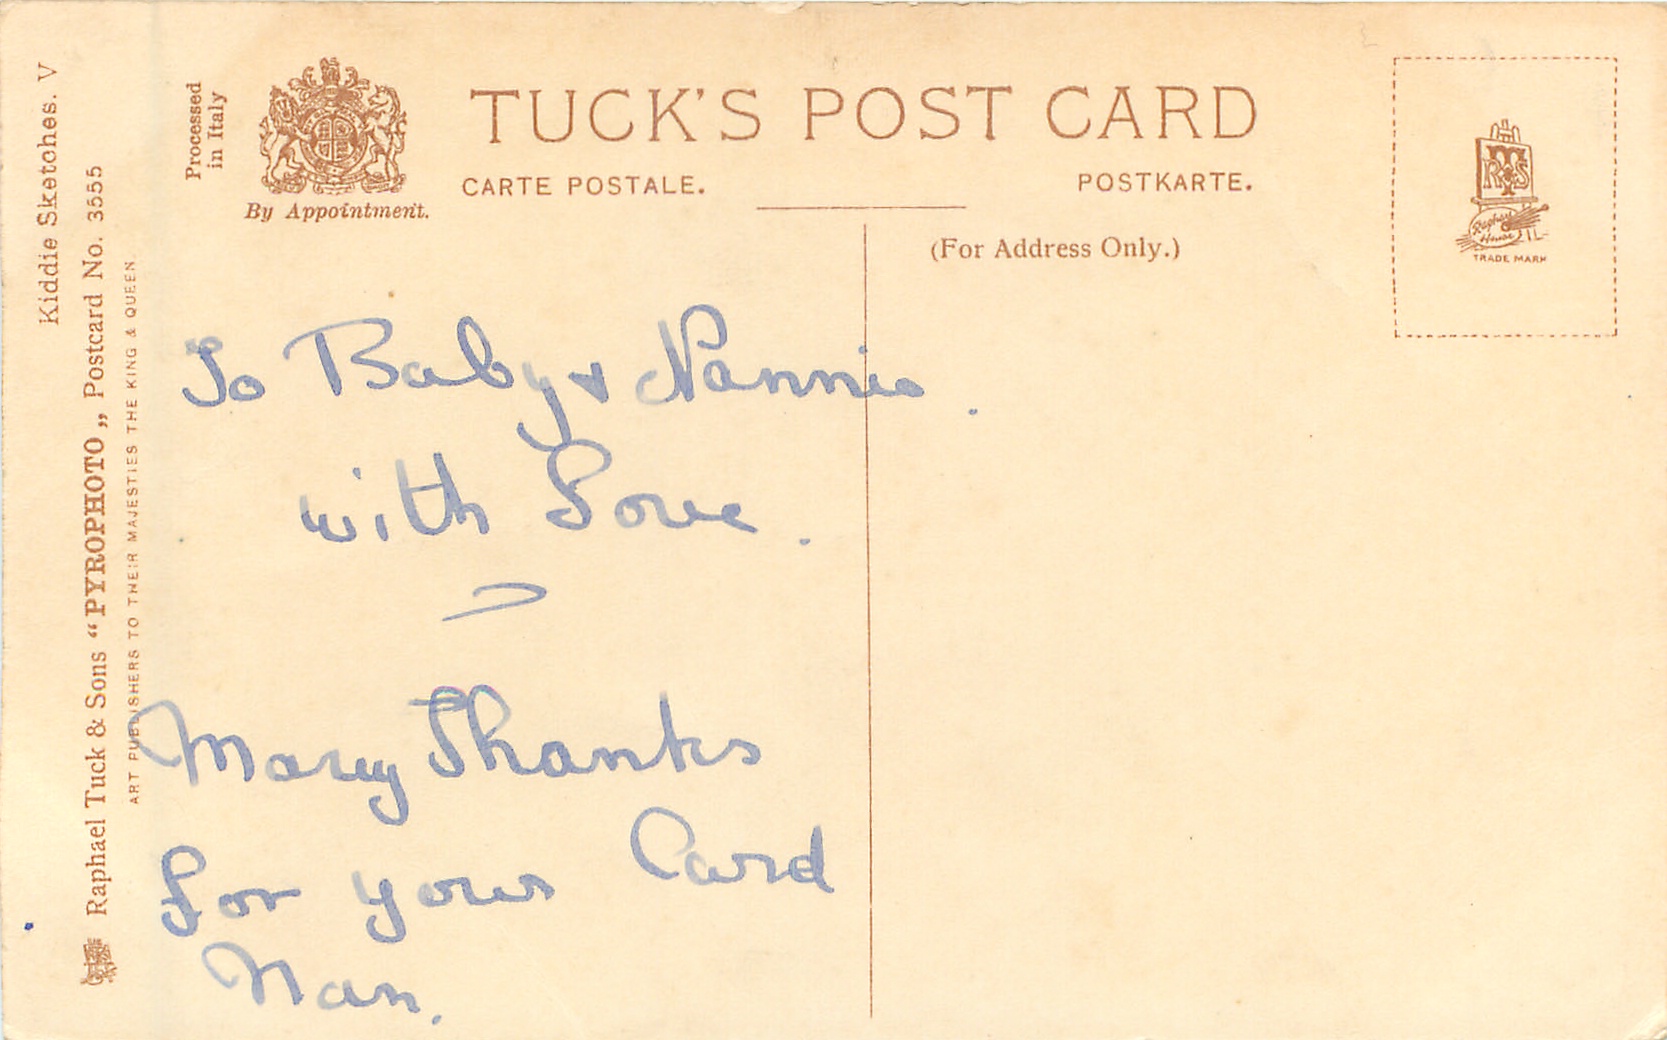 Kiddie Sketches. V
Raphael Tuck & Sons "PYROPHOTO„ Postcard No. 3555
ART PUBLISHERS TO THEIR MAJESTIES THE KING & QUEEN.
Processed
in Italy
By Appointment.
TUCK'S POST CARD
CARTE POSTALE.
POSTKARTE.
(For Address Only.)
RTS
Raphael
House
TRADE MARK
To Baby & Nannie.
with Love.
Many Thanks
for your Card
Nan.